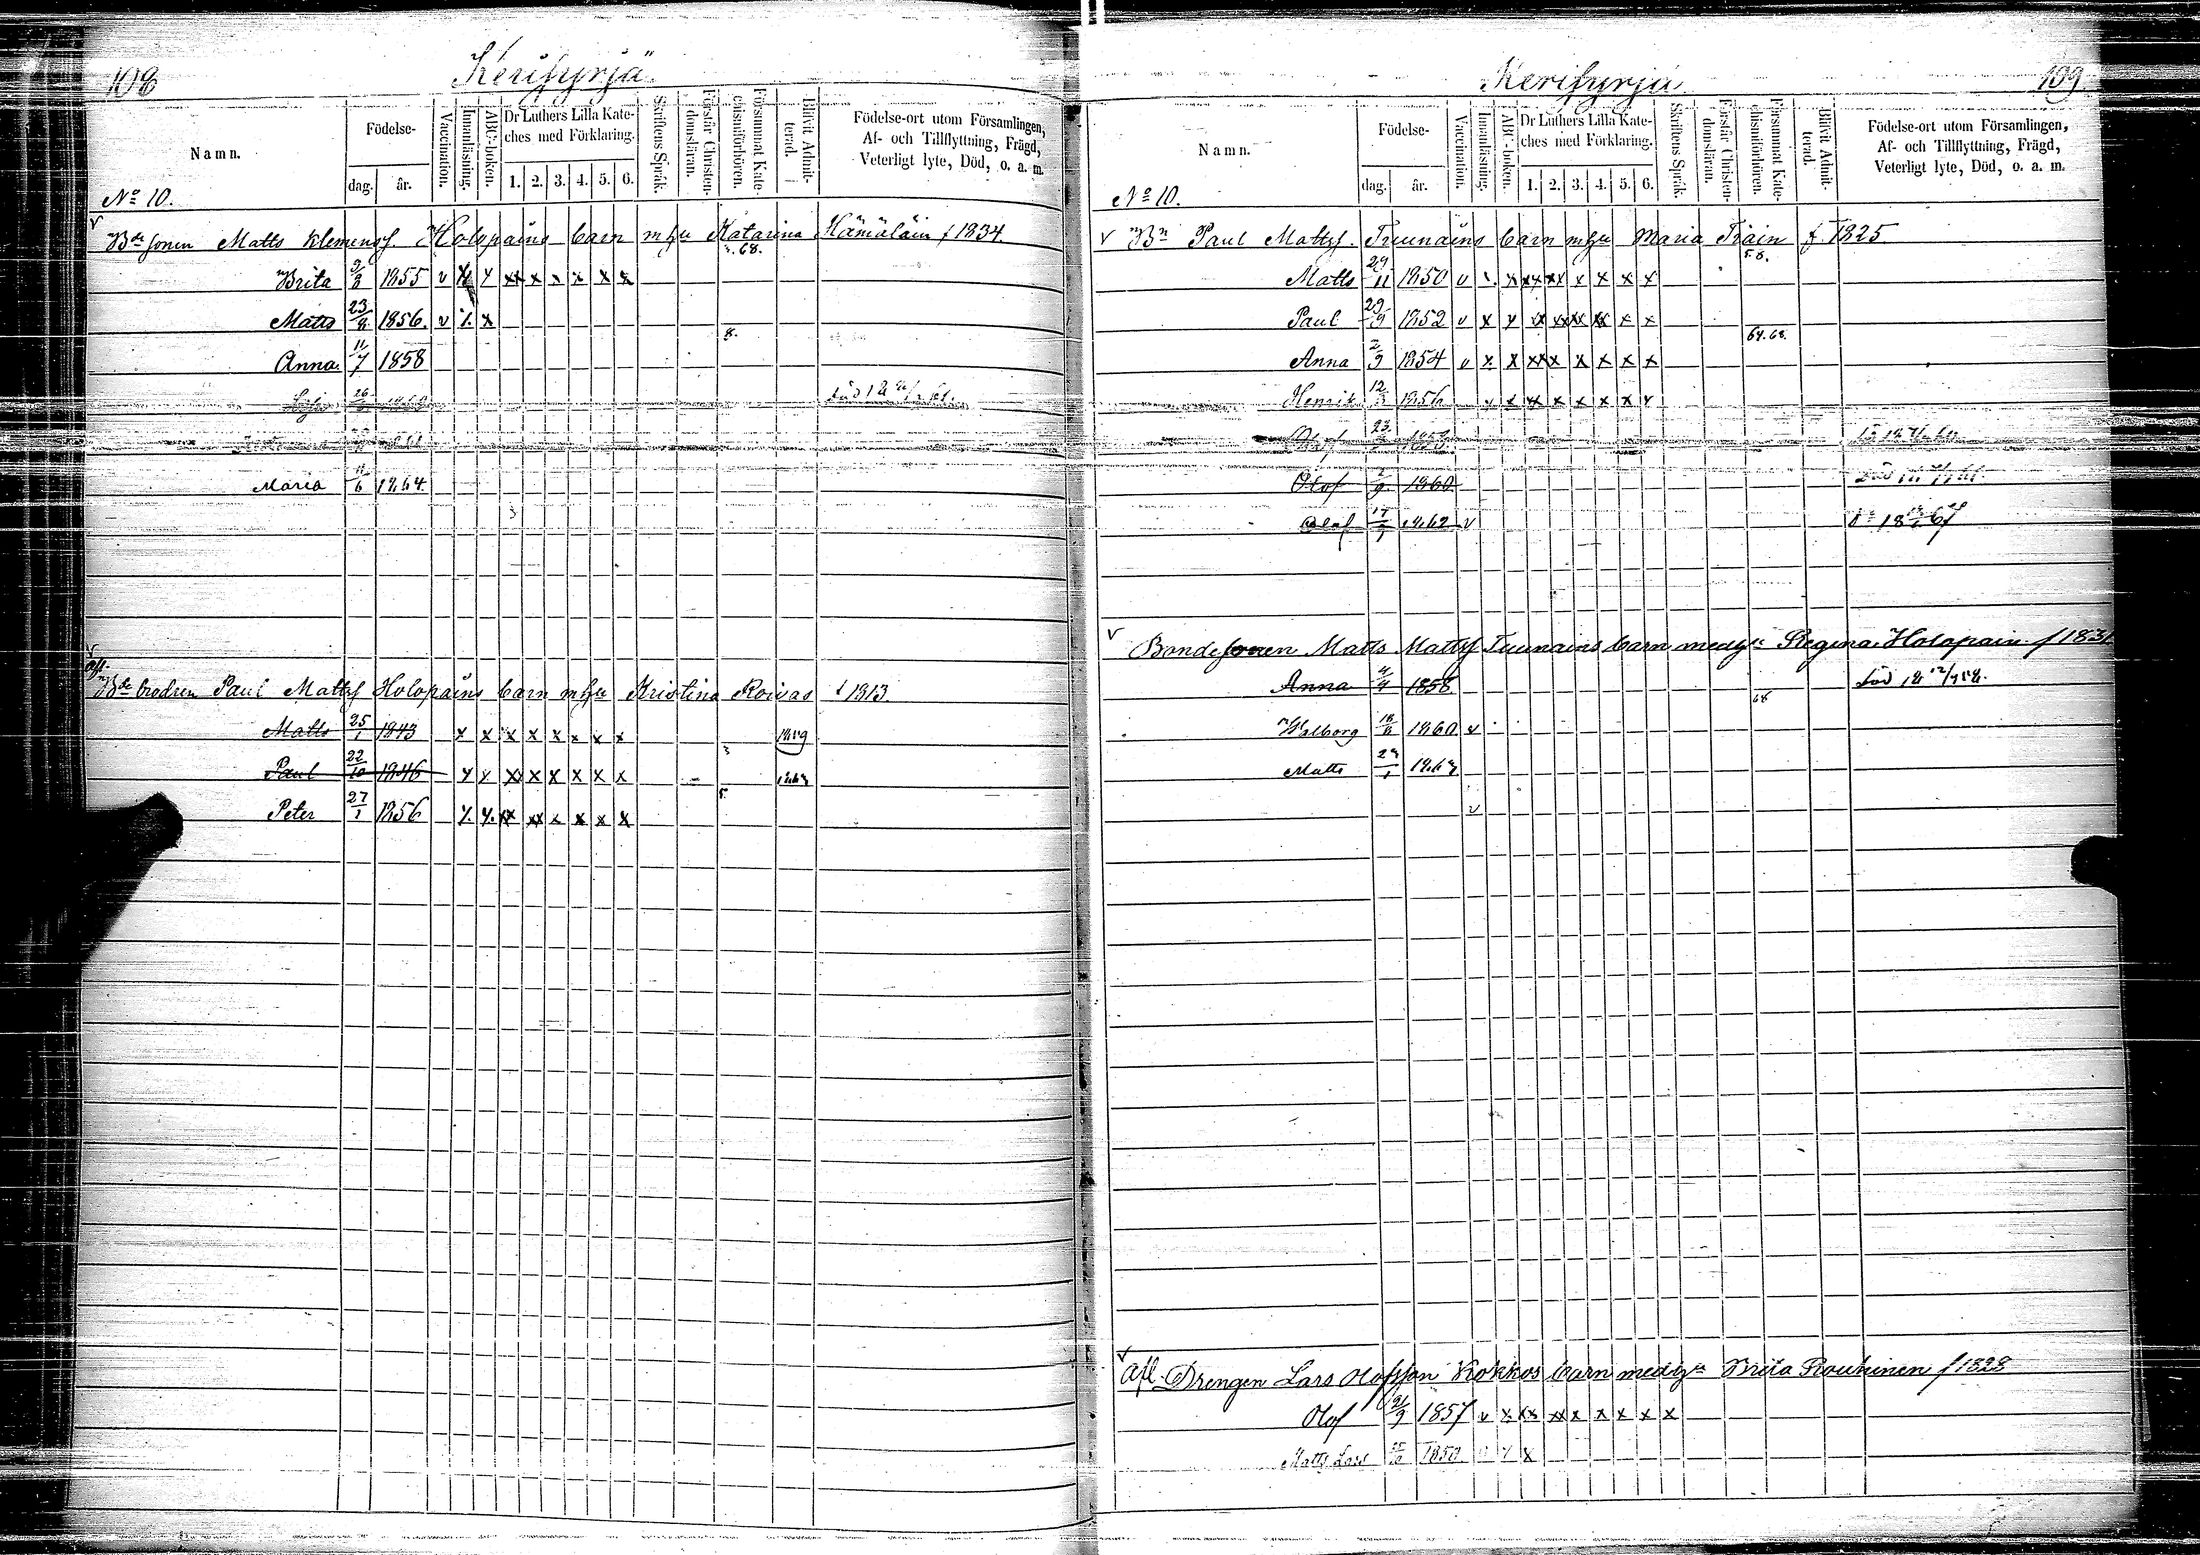 108
Kerisyrjä
Namn.
Födelse-
dag.
år.
Vaccination.
Innanläsning.
ABC-boken.
Dr Luthers Lilla Kate-
ches med Förklaring.
1. 2. 3. 4. 5. 6.
Skriftens Språk.
Förstår Christen-
domsläran.
Försummat Kate-
chismiförhören.
Blifvit Admit-
terad.
Födelse-ort utom Församlingen,
Af- och Tillflyttning, Frägd,
Veterligt lyte, Död, o. a. m.
No 10.
v Bdesonen Matts Klemenss. Holopains barn m hu Katarina Hämäläin f 1834.
68.
Brita 1855 v x x x x x x
Matts 23/8 1856. v x
8.
Anna 11/7 1858
26
Maria 11/6 1864.
v
Afl.
Bde brodren Paul Mattss Holopains barn m hu Kristina Roivas f 1813.
Matts 25/1 1843 x x x x x x x x 1859
3
Paul 22/10 1846 x x x x x x x x
5.
Peter 27/1 1856 x x x x x x x x
109
Kerisyrjä
Namn.
Födelse-
dag.
år.
Vaccination.
Innanläsning.
ABC-boken.
Dr Luthers Lilla Kate-
ches med Förklaring.
1. 2. 3. 4. 5. 6.
Skriftens Språk.
Förstår Christen-
domsläran.
Försummat Kate-
chismiförhören.
Blifvit Admit-
terad.
Födelse-ort utom Församlingen,
Af- och Tillflyttning, Frägd,
Veterligt lyte, Död, o. a. m.
No 10.
v Bn Paul Mattss. Tuunains barn m hu Maria Träin f 1825
58.
Matts 29/11 1850 v x xx xx x x x x
Paul 29/9 1852 v x x x xx xx x x x
64. 68.
Anna 2/9 1854 v x x xx x x x x x
Henrik 12/3 1856 x x x x x x x x
23
Olof 2/9 1860
Olof 1862 v
v
Bondesonen Matts Mattss Tuunains barn med hu Regina Holopain f 1831
Anna 4/9 1858 död
68
Walborg 1860 v
Matts
v
v
Afl. Drengen Lars Olofsson Kokkos barn med hu Brita Rouhinen f 1828
Olof 21/9 1857 v x x xx x x x x x
Matts Lars 1850 x x